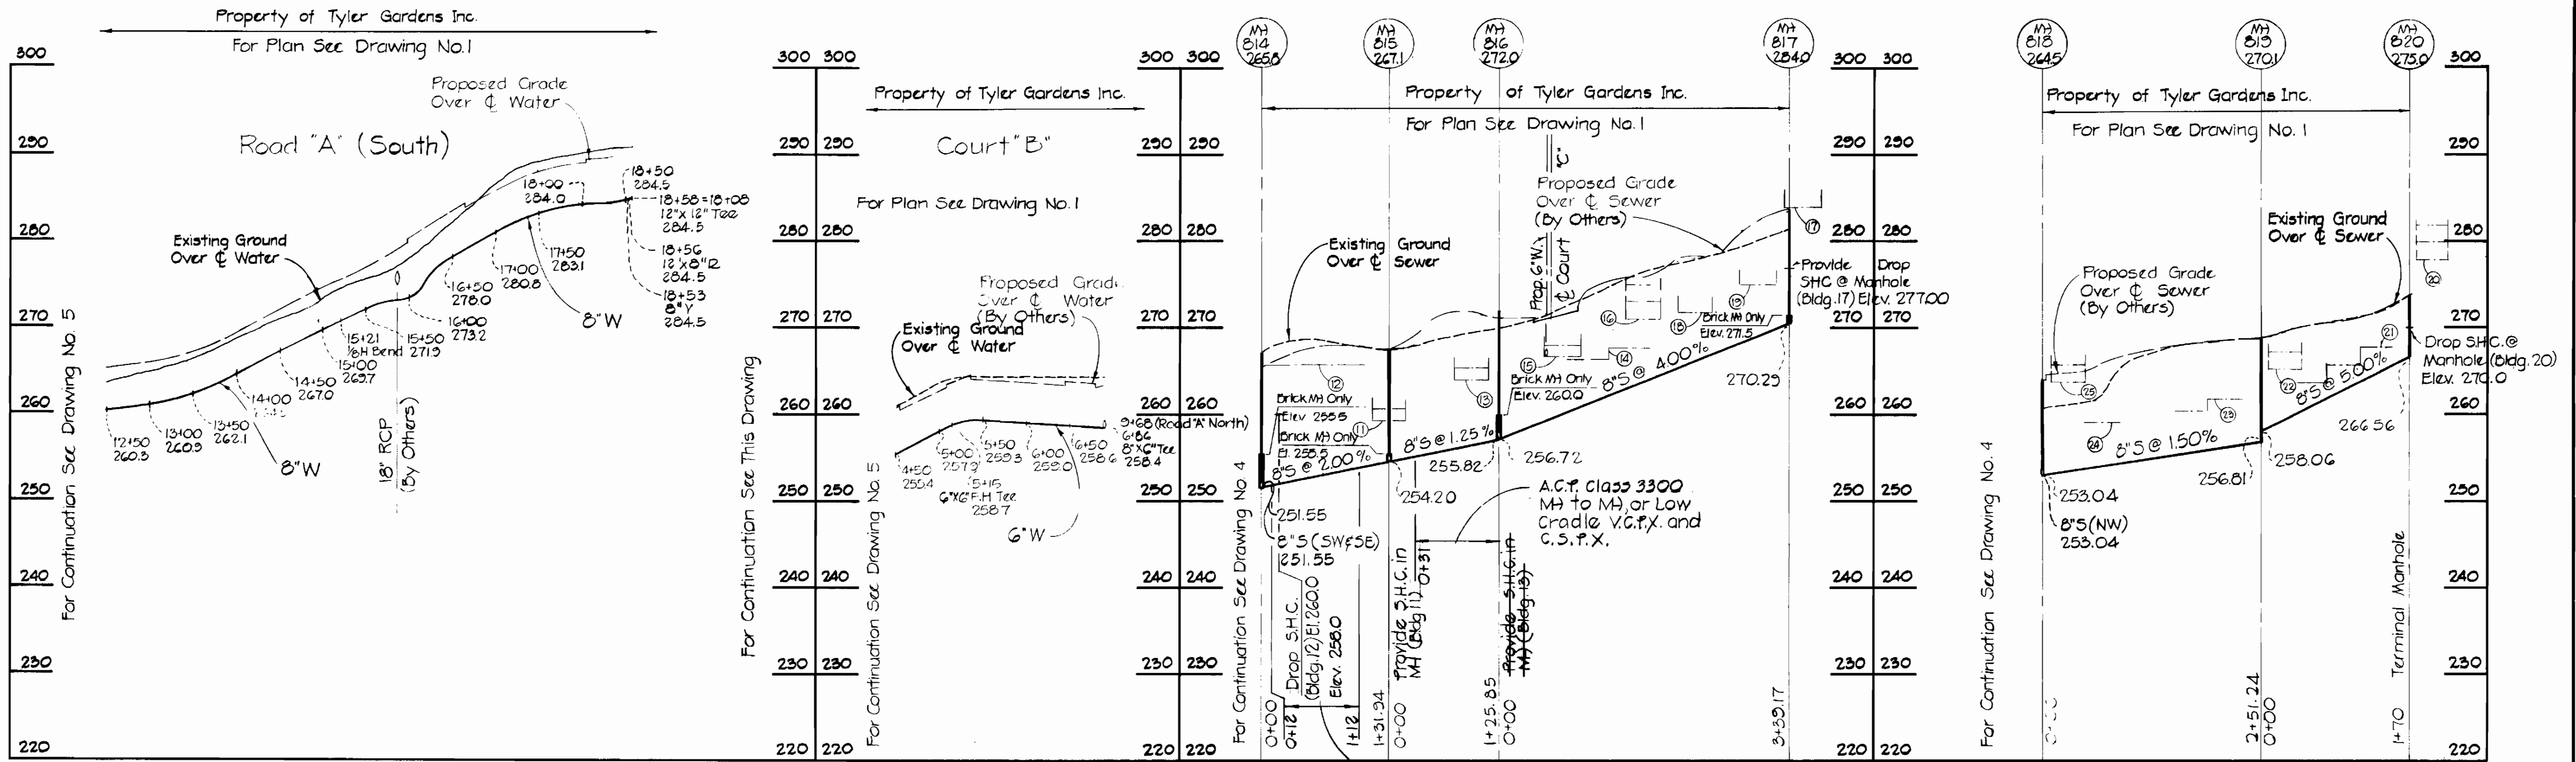 Property of Tyler Gardens Inc.
For Plan See Drawing No.1
300
290
280
270
260
250
240
230
220
For Continuation See Drawing No. 5
Road "A" (South)
Proposed Grade
Over ℄ Water
Existing Ground
Over ℄ Water
12+50
260.3
13+00
260.9
13+50
262.1
14+00
14+50
267.0
15+00
269.7
15+21
1/8 H Bend
15+50
271.9
16+00
273.2
16+50
278.0
17+00
280.8
17+50
283.1
18+00
284.0
18+50
284.5
18+58=18+08
12"x 12" Tee
284.5
18+56
12"x8"R
284.5
18+53
8"Y
284.5
8"W
8"W
18" RCP
(By Others)
For Continuation See This Drawing
300 300
290 290
280 280
270 270
260 260
250 250
240 240
230 230
220 220
For Continuation See Drawing No. 5
Property of Tyler Gardens Inc.
Court "B"
For Plan See Drawing No.1
Proposed Grad
Over ℄ Water
(By Others)
Existing Ground
Over ℄ Water
4+50
255.4
5+00
257.9
5+15
6"x6" F.H Tee
258.7
5+50
259.3
6+00
259.0
6+50
258.6
9+68 (Road "A" North)
6+86
8"x6" Tee
258.4
6"W
300 300
290 290
280 280
270 270
260 260
250 250
240 240
230 230
220 220
For Continuation See Drawing No. 4
MH
814
265.8
MH
815
267.1
MH
816
272.0
MH
817
284.0
Property of Tyler Gardens Inc.
For Plan See Drawing No. 1
Existing Ground
Over ℄ Sewer
Prop. 6"W.
℄ Court "C"
Proposed Grade
Over ℄ Sewer
(By Others)
17
Provide Drop
SHC @ Manhole
(Bldg.17) Elev. 277.00
16
19
18
Brick MH Only
Elev. 271.5
15
14
12
13
11
Brick MH Only
Elev 255.5
Brick MH Only
El. 255.5
Brick MH Only
Elev. 260.0
8"S @ 2.00%
8"S @ 1.25%
8"S @ 4.00%
270.29
255.82
256.72
254.20
251.55
8"S (SW&SE)
251.55
A.C.P. Class 3300
MH to MH, or Low
Cradle V.C.P.X. and
C.S.P.X.
Drop S.H.C.
(Bldg.12) El.260.0
Elev. 258.0
Provide S.H.C. in
MH (Bldg 11)
0+31
Provide S.H.C. in
MH (Bldg.13)
0+00
0+12
1+12
1+31.94
0+00
1+25.85
0+00
3+39.17
300 300
290 290
280 280
270 270
260 260
250 250
240 240
230 230
220 220
For Continuation See Drawing No. 4
MH
818
264.5
MH
819
270.1
MH
820
275.0
Property of Tyler Gardens Inc.
For Plan See Drawing No. 1
Existing Ground
Over ℄ Sewer
Proposed Grade
Over ℄ Sewer
(By Others)
20
21
Drop S.H.C. @
Manhole (Bldg. 20)
Elev. 270.0
25
22
23
24
8"S @ 1.50%
8"S @ 5.00%
266.56
258.06
256.81
253.04
8"S (NW)
253.04
2+51.24
0+00
1+70
Terminal Manhole
300
290
280
270
260
250
240
230
220